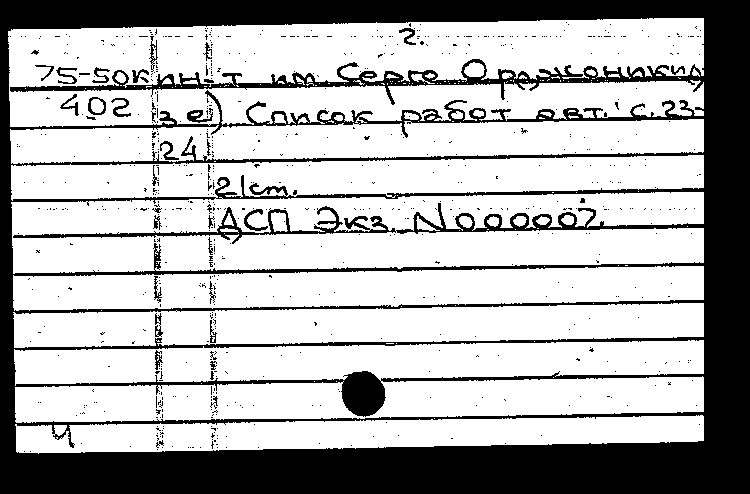 2.
75-50к ин-т им. Серго Орджоникид-
402 зе) Список работ авт.: с. 23-
24.
21 cm.
ДСП Экз. N000007.
ч